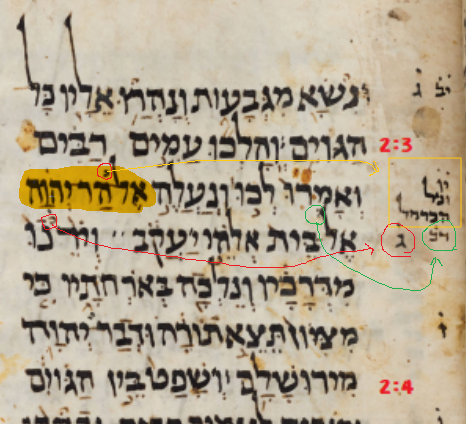 ונשא מגבעות ונהרו אליו כל
הגוים והלכו עמים רבים 2:3
ואמרו לכו ונעלה אל הר יהוה
אל בית אלהי יעקב וירנו ג
מדרכיו ונלכה בארחתיו כי
מציון תצא תורה ודבר יהוה
מירושלם ושפט בין הגוים 2:4